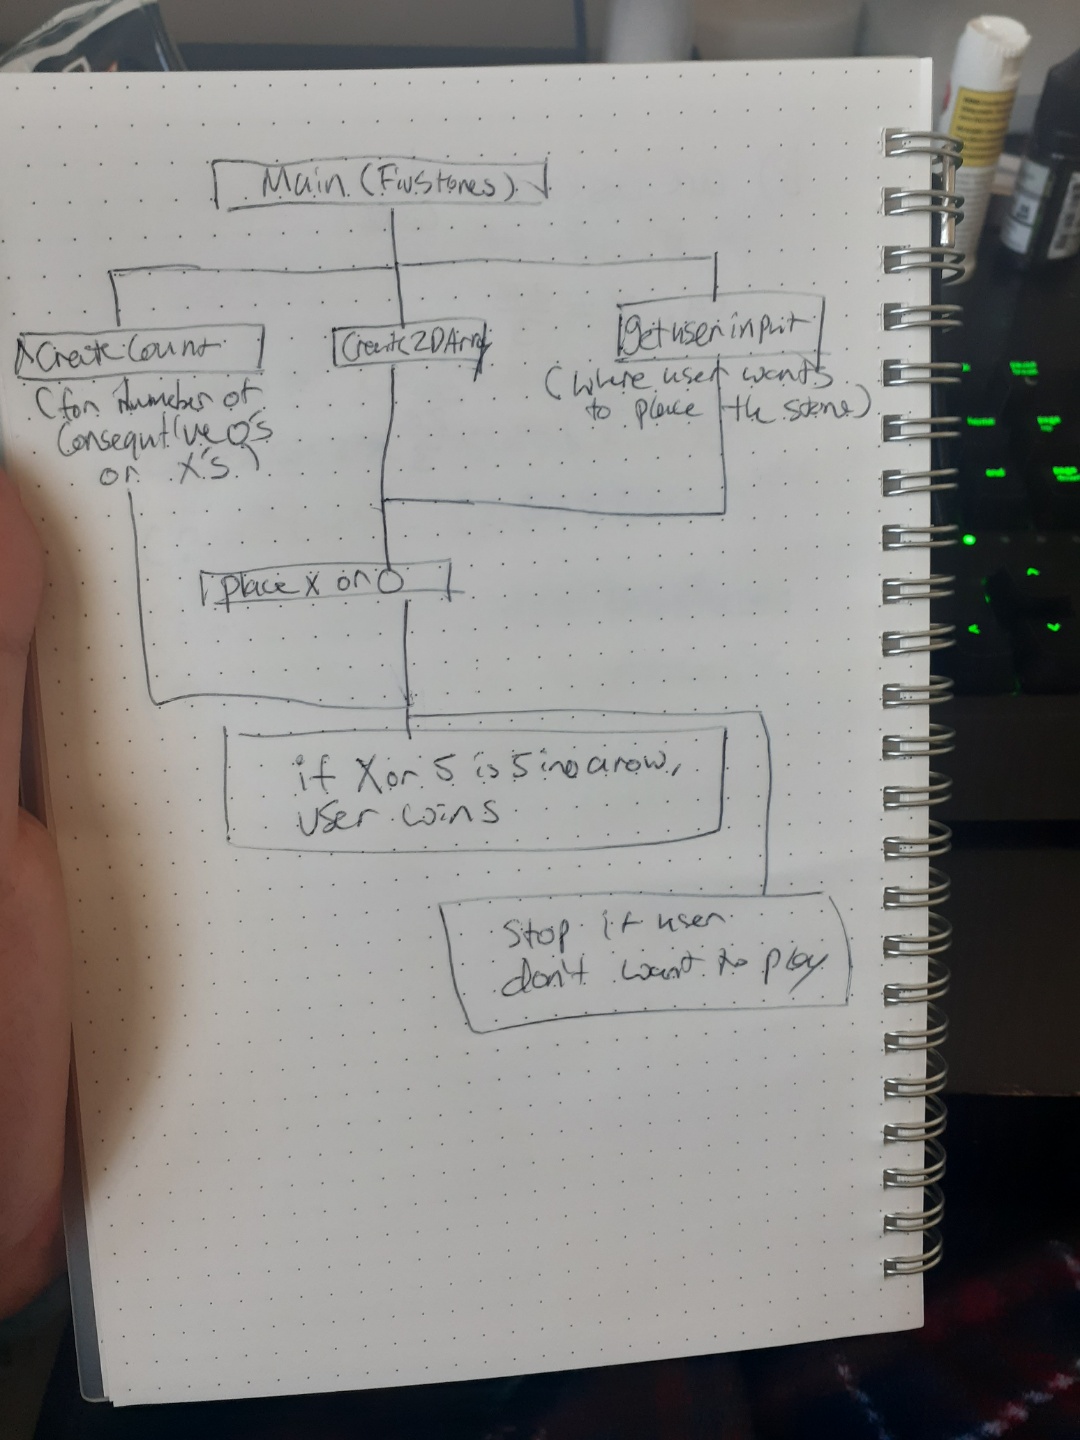 Main (FivStones)
Create Count
(for number of
Consequtive O's
or X's)
Create 2DArray
getuserinput
(where user wants
to place the stone)
place X or O
if X or 5 is 5 ina row,
user wins
Stop if user
don't want to play
home
page
end
page